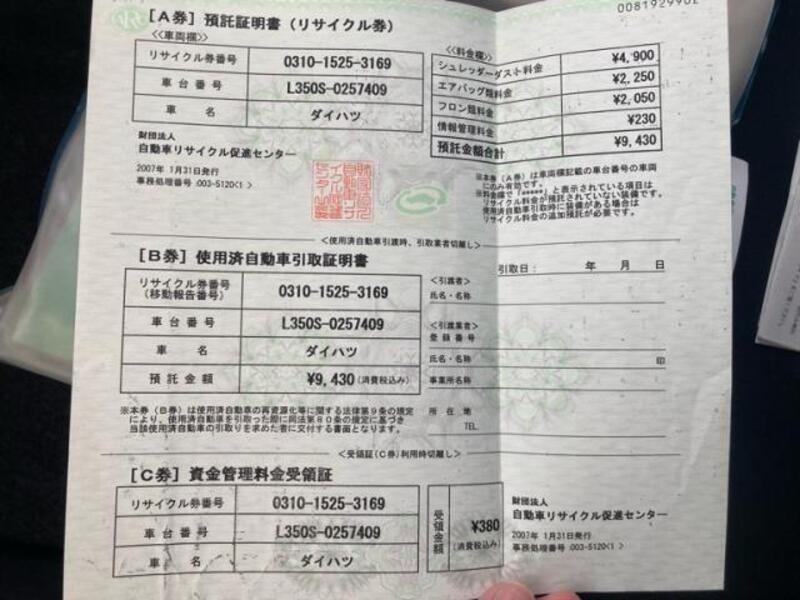 0081929902
[A券] 預託証明書 (リサイクル券)
≪車両欄≫
リサイクル券番号 0310-1525-3169
車台番号 L350S-0257409
車名 ダイハツ
≪料金欄≫
シュレッダーダスト料金 ¥4,900
エアバッグ類料金 ¥2,250
フロン類料金 ¥2,050
情報管理料金 ¥230
預託金額合計 ¥9,430
財団法人
自動車リサイクル促進センター
2007年 1月31日発行
事務処理番号 :003-5120<1 >
※本券(A券)は車両欄記載の車台番号の車両
にのみ有効です。
※料金欄で「*****」と表示されている項目は
リサイクル料金が預託されていない装備です。
使用済自動車引取時に装備がある場合は
リサイクル料金の追加預託が必要です。
<使用済自動車引渡時、引取業者切離し>
[B券] 使用済自動車引取証明書
引取日: 年 月 日
リサイクル券番号
(移動報告番号) 0310-1525-3169
車台番号 L350S-0257409
車名 ダイハツ
預託金額 ¥9,430 (消費税込み)
<引渡者>
氏名・名称
<引渡業者>
登録番号
氏名・名称 印
事業所名称
所在地
TEL.
※本券(B券)は使用済自動車の再資源化等に関する法律第9条の規定
により、使用済自動車を引取った際に同法第80条の規定に基づき
当該使用済自動車の引取りを求めた者に交付する書面となります。
<受領証(C券)利用時切離し>
[C券] 資金管理料金受領証
リサイクル券番号 0310-1525-3169
車台番号 L350S-0257409
車名 ダイハツ
受領金額 ¥380
(消費税込み)
財団法人
自動車リサイクル促進センター
2007年 1月31日発行
事務処理番号 :003-5120<1 >